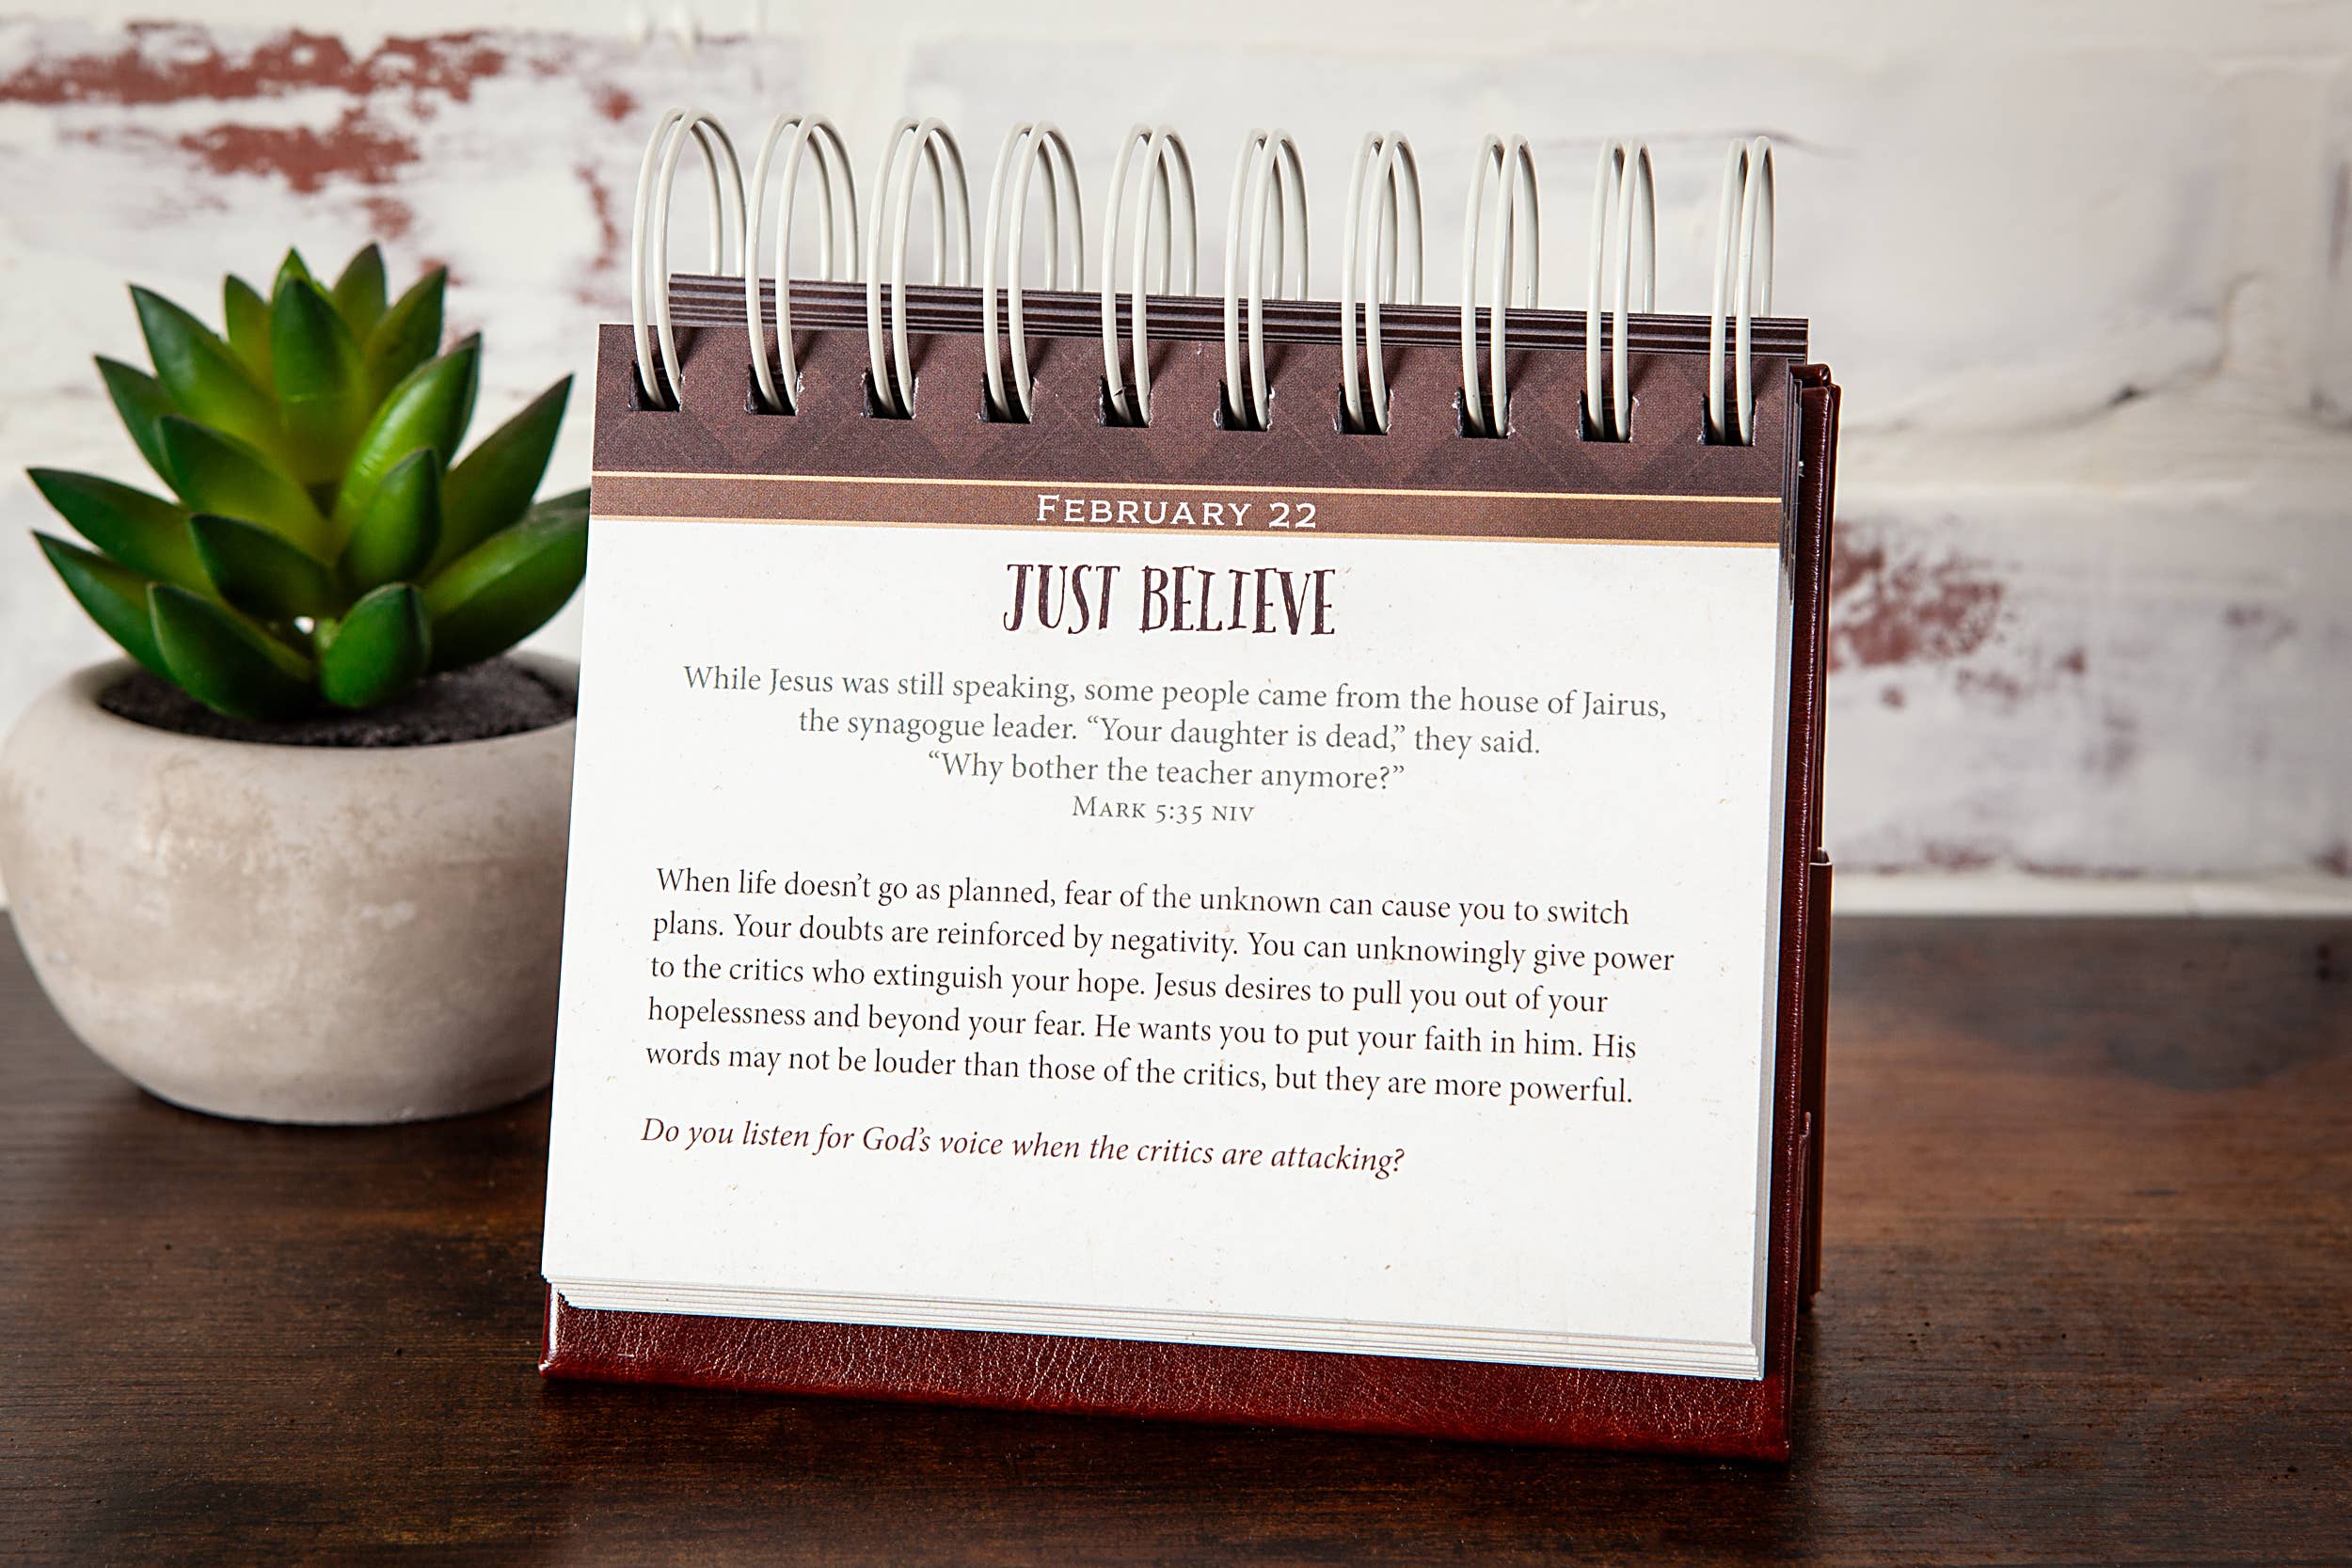 FEBRUARY 22
JUST BELIEVE
While Jesus was still speaking, some people came from the house of Jairus,
the synagogue leader. “Your daughter is dead,” they said.
“Why bother the teacher anymore?”
MARK 5:35 NIV
When life doesn’t go as planned, fear of the unknown can cause you to switch
plans. Your doubts are reinforced by negativity. You can unknowingly give power
to the critics who extinguish your hope. Jesus desires to pull you out of your
hopelessness and beyond your fear. He wants you to put your faith in him. His
words may not be louder than those of the critics, but they are more powerful.
Do you listen for God’s voice when the critics are attacking?